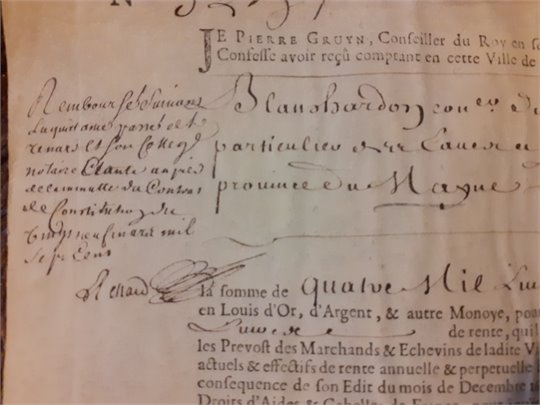 JE PIERRE GRUYN, Conseiller du Roy en se
Confesse avoir reçû comptant en cette Ville de
Remboursé Suivant
la quittance passé
Renard et Son Collegue
notaire Etante au pied
de la minutte du Contrat
de Constitution du
vingt neuf mars mil
Sept Cens
Renard
Blanchardon con.er du
particulier
province du Mayne
la somme de Quatre Mil Liv
en Louis d'Or, d'Argent, & autre Monoye, pou
de rente, qu'il
les Prevost des Marchands & Echevins de ladite V
actuels & effectifs de rente annuelle & perpetuelle
consequence de son Edit du mois de Decembre 1
Droits d'Aides & Gabelles de France